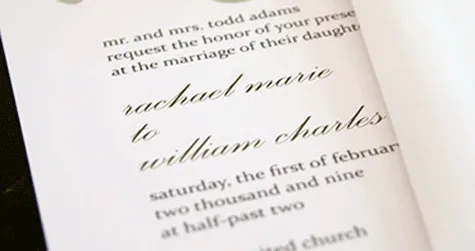 mr. and mrs. todd adams
request the honor of your prese
at the marriage of their daught
rachael marie
to
william charles
saturday, the first of february
two thousand and nine
at half-past two
united church